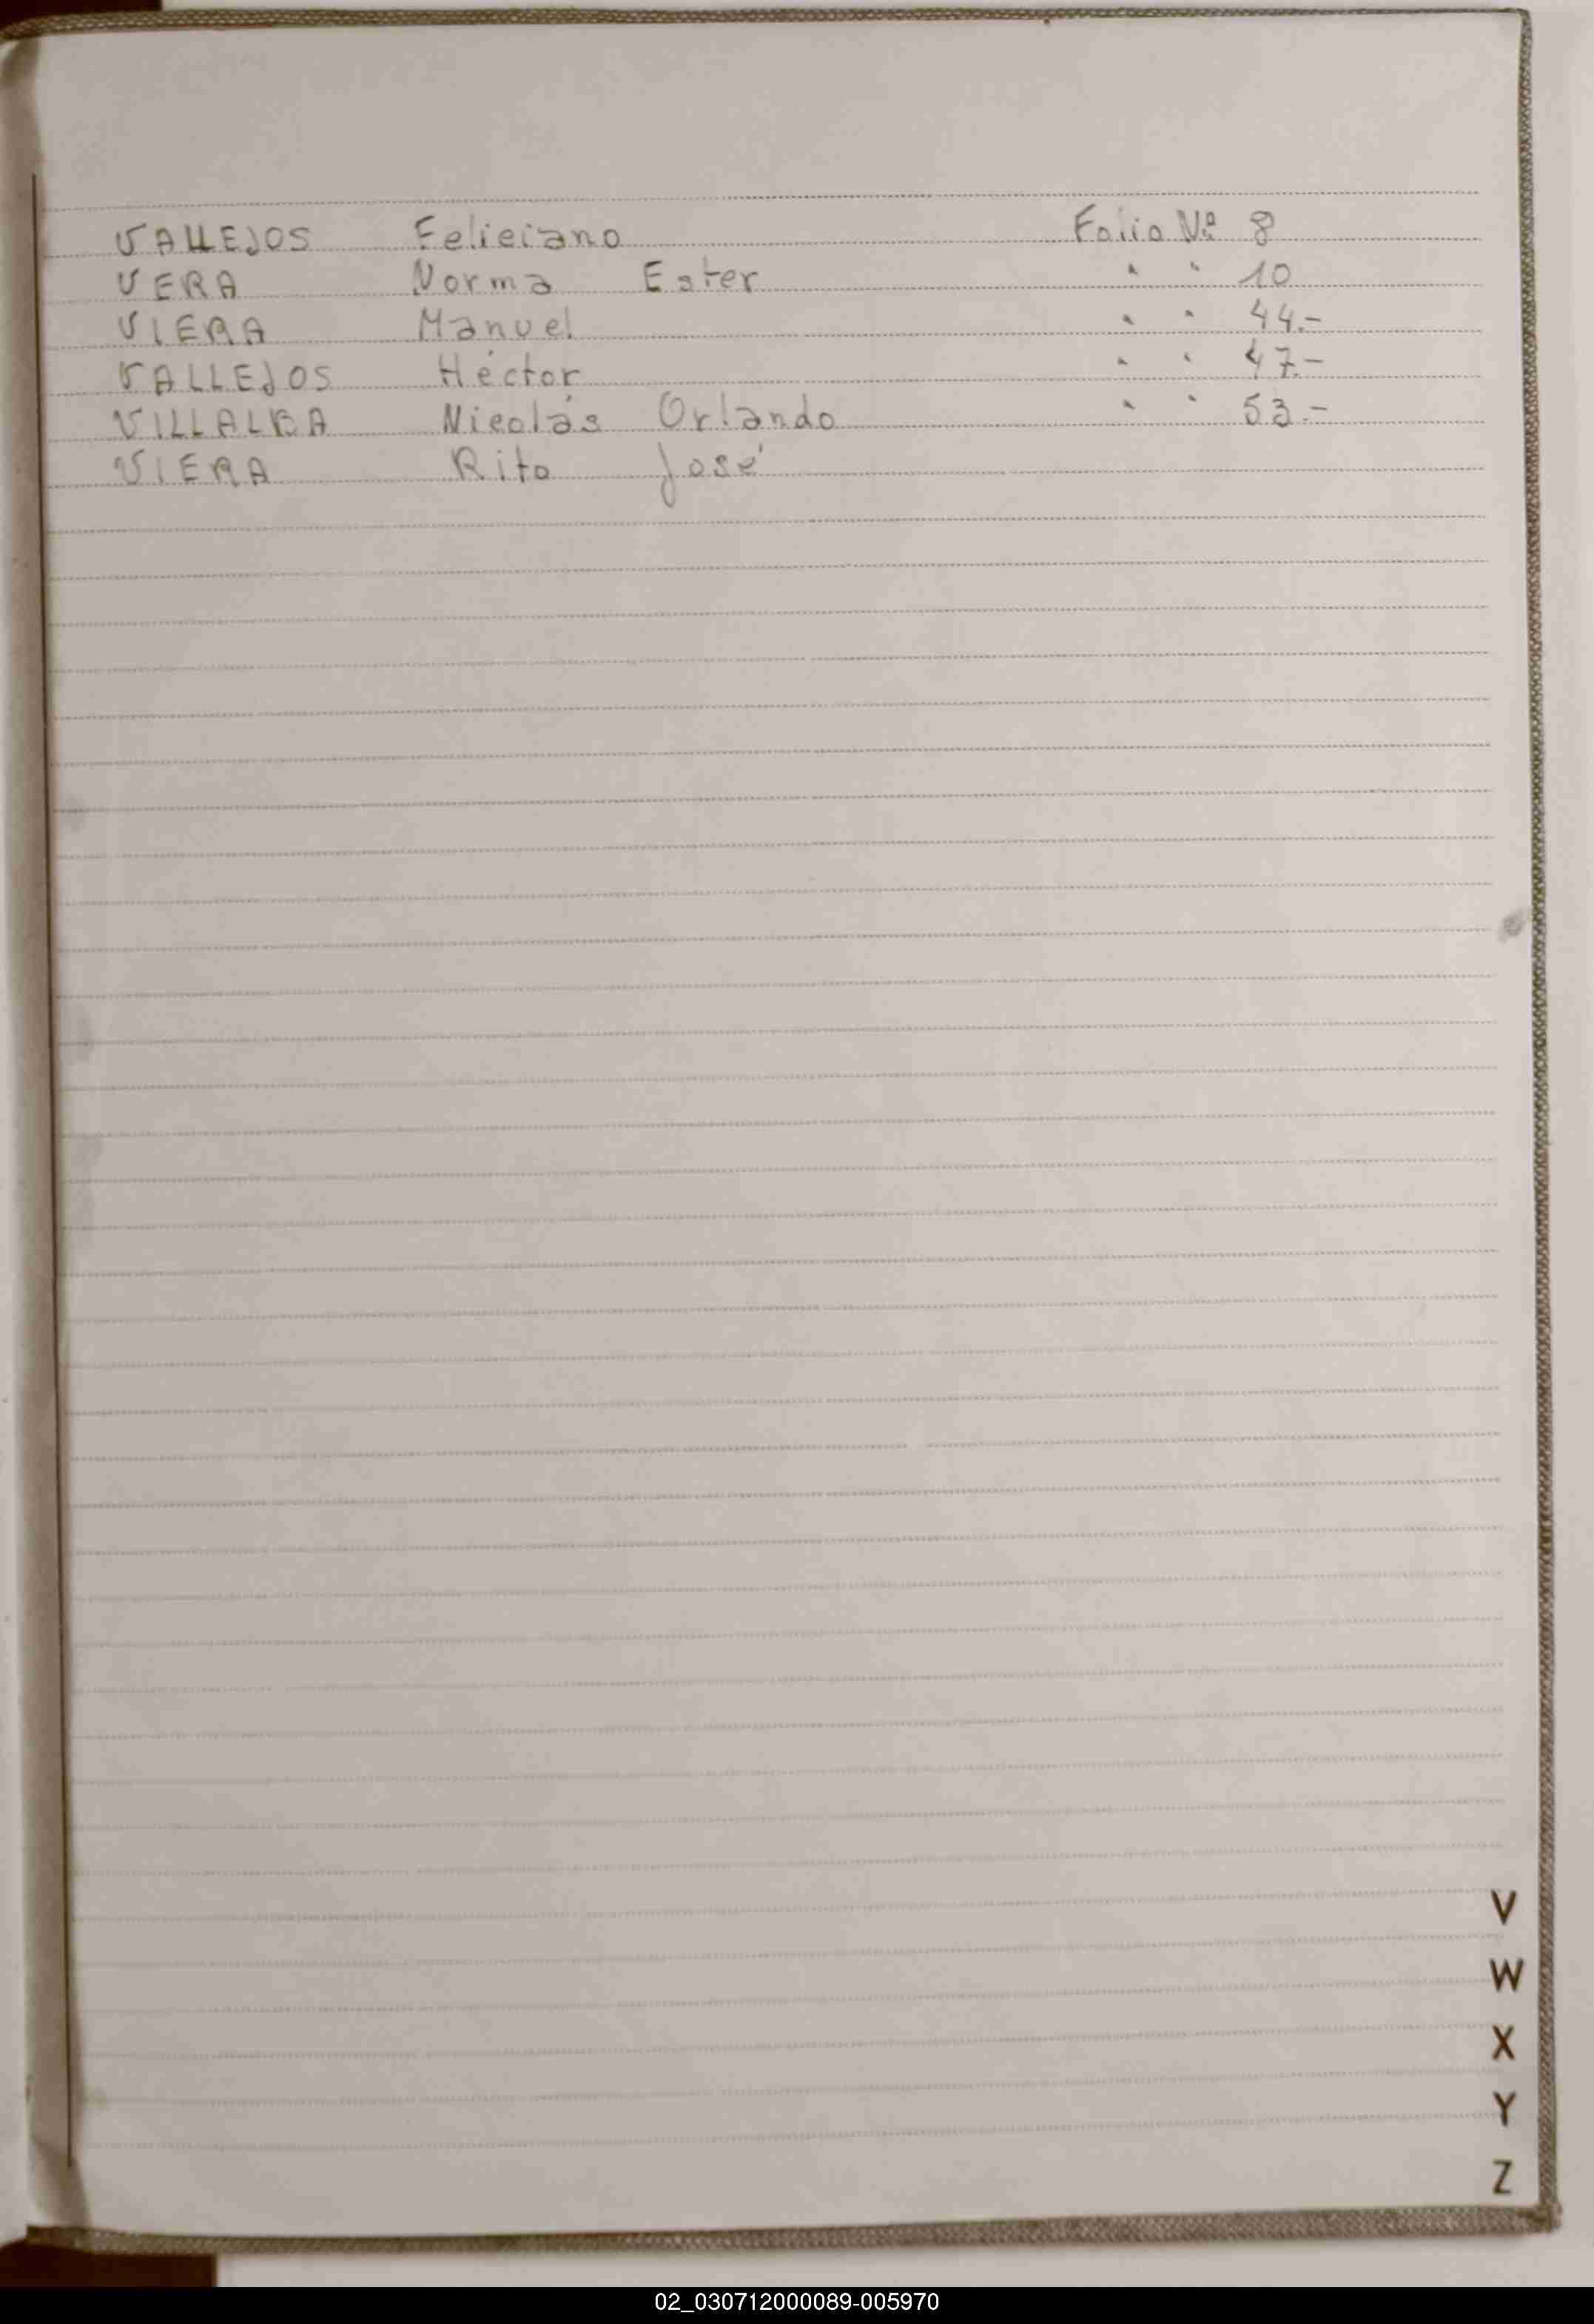 VALLEJOS Feliciano Folio Nº 8
VERA Norma Ester " " 10
VIERA Manuel " " 44.-
VALLEJOS Héctor " " 47.-
VILLALBA Nicolás Orlando " " 53.-
VIERA Rito José
V
W
X
Y
Z
02_030712000089-005970